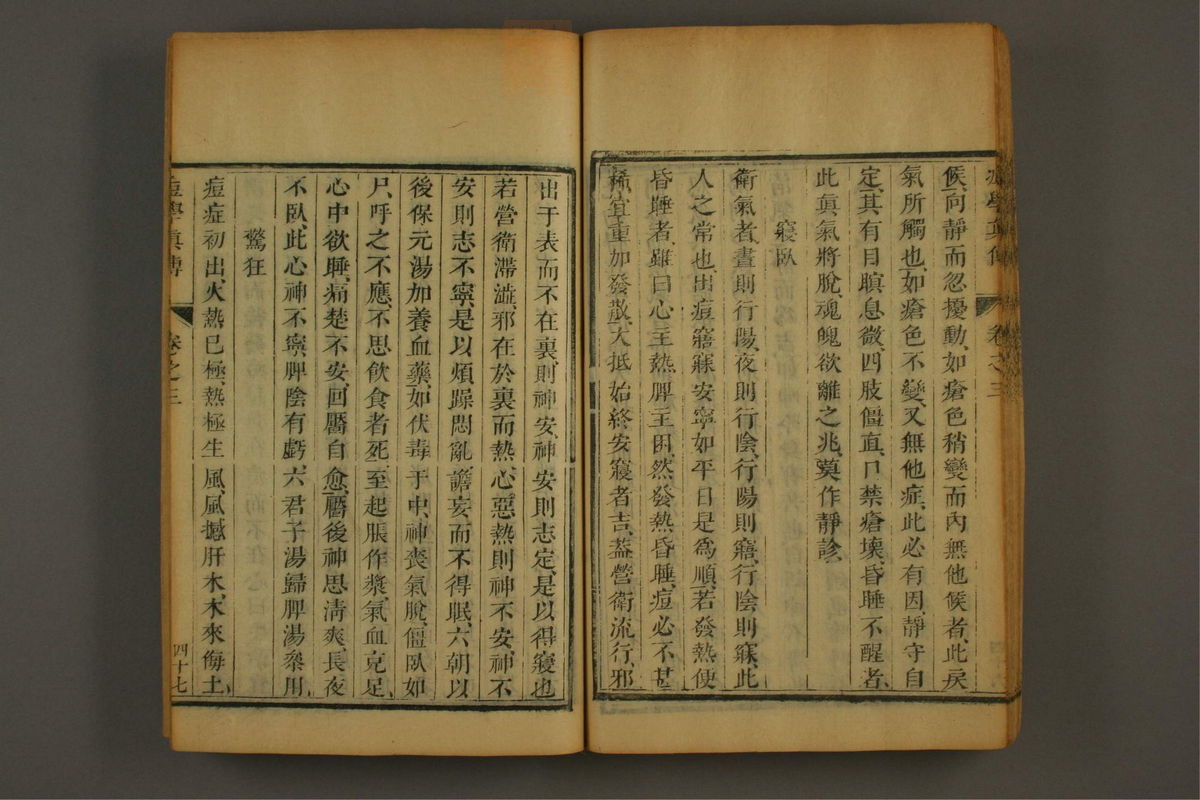 痘學真傳 卷之三
候、向靜而忽擾動、如瘡色稍變而內無他候者、此戾
氣所觸也、如瘡色不變、又無他症、此必有因、靜守自
定、其有目瞑息微、四肢僵直、口禁瘡壞、昏睡不醒者、
此真氣將脫、魂魄欲離之兆、莫作靜診、
寢臥
衛氣者、晝則行陽、夜則行陰、行陽則寤、行陰則寐、此
人之常也、出痘寤寐安寧如平日、是為順、若發熱便
昏睡者、雖曰心主熱、脾主困、然發熱昏睡、痘必不甚
稀、宜重加發散、大抵始終安寢者吉、蓋營衛流行、邪
出于表而不在裏、則神安、神安則志定、是以得寢也
若營衛滯澁、邪在於裏而熱、心惡熱則神不安、神不
安則志不寧、是以煩躁悶亂、譫妄而不得眠、六朝以
後保元湯加養血藥、如伏毒于中、神喪氣脫、僵臥如
尸、呼之不應、不思飲食者死、至起脹作漿、氣血克足、
心中欲睡、痛楚不安、回靨自愈、靨後神思清爽、長夜
不臥、此心神不寧、脾陰有虧、六君子湯歸脾湯叅用、
驚狂
痘症初出、火熱已極、熱極生風、風撼肝木、木來侮土、
痘學真傳 卷之三 四十七